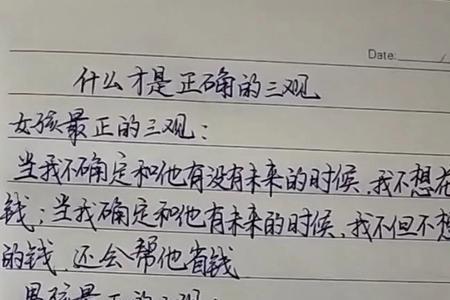 Date:
什么才是正确的三观
女孩最正的三观:
当我不确定和他有没有未来的时候,我不想花
钱;当我确定和他有未来的时候,我不但不想
的钱,还会帮他省钱
男孩最正的三观: